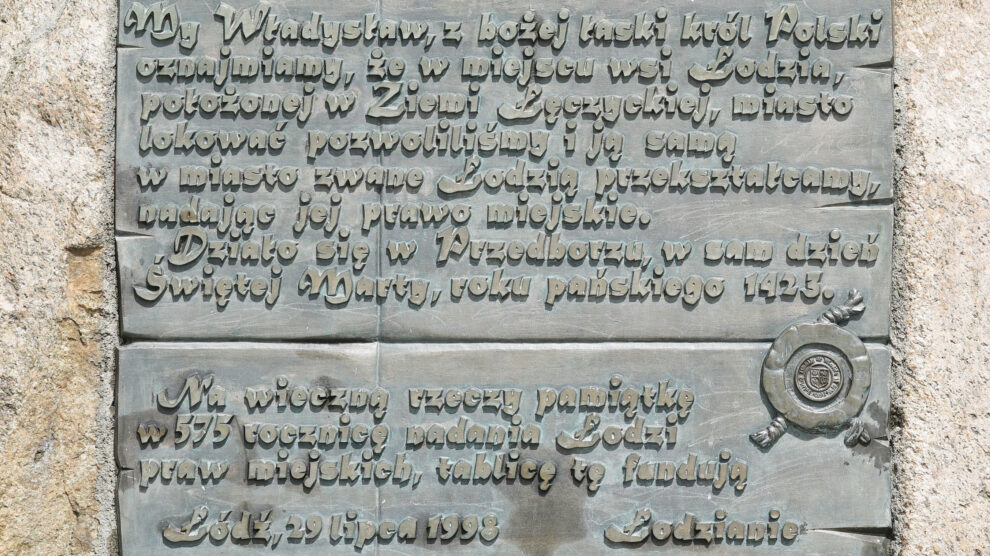 My Władysław, z bożej łaski król Polski
oznajmiamy, że w miejscu wsi Łodzia,
położonej w Ziemi Łęczyckiej, miasto
lokować pozwoliliśmy i ją samą
w miasto zwane Łodzią przekształcamy,
nadając jej prawo miejskie.
Działo się w Przedborzu, w sam dzień
Świętej Marty, roku pańskiego 1423.
Na wieczną rzeczy pamiątkę
w 575 rocznicę nadania Łodzi
praw miejskich, tablicę tę fundują
Łódź, 29 lipca 1998 Łodzianie